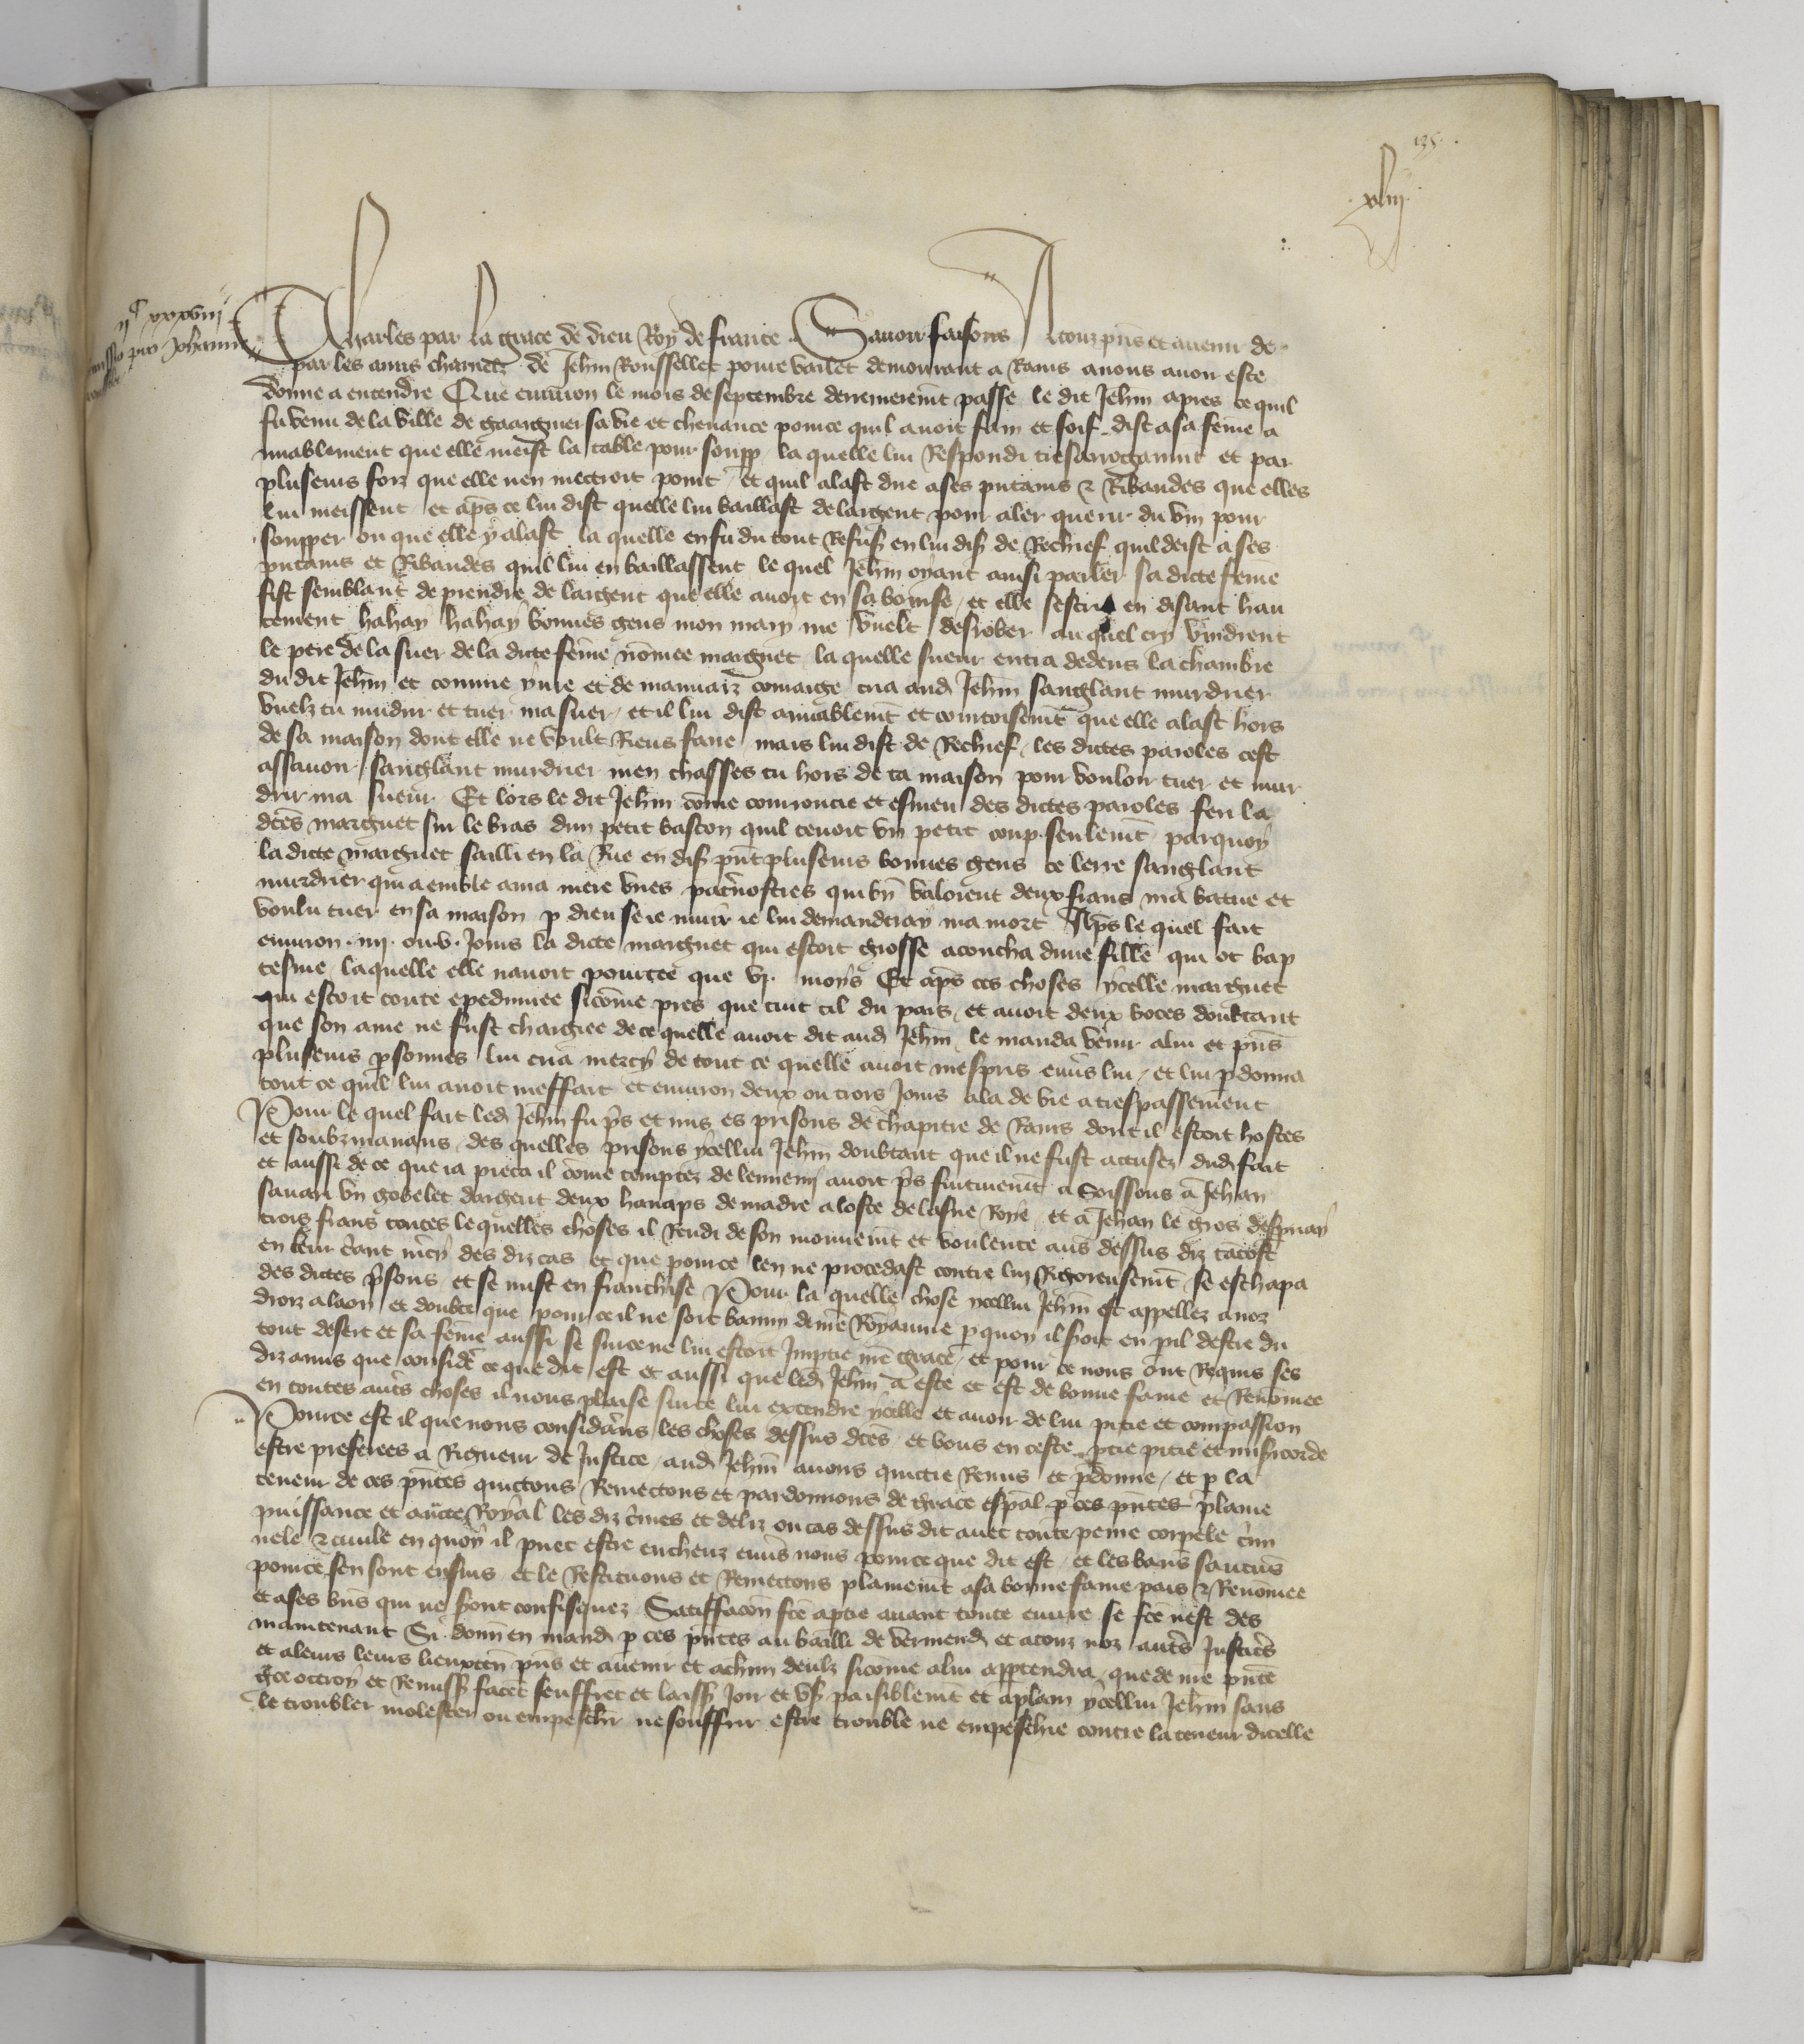 135.
xliij
ijᶜ xxxviij
Remissio pro Johanne
Charles par la grace de dieu Roy de france Savoir faisons A touz pñs et avenir de
par les amis charnelz de Jehñ Rousselet povre varlet demourant a Rains a nous avoir este
donne a entendre Que environ le mois de septembre derrenieremt passe le dit Jehñ apres ce quil
fu venu de la ville de gaaigner sa vie et chevance pource quil avoit fain et soif dist a sa feme a
miablement que elle meist la table pour soupp la quelle lui Respondi tresarrogamt et par
plusieurs foiz que elle nen mectroit point et quil alast dire a ses putains & Ribaudes que elles
lui meissent et ap̃s ce lui dist quelle lui baillast de largent pour aler querir du vin pour
soupper ou que elle y alast la quelle en fu du tout Refus en lui dis de Rechief quil deist a ses
putains et Ribaudes quil lui en baillassent le quel Jehñ oyant ainsi parler sa dicte feme
fist semblant de prendre de largent que elle avoit en sa bourse et elle sescria en disant hau
tement hahay hahay bonnes gens mon mary me vuelt desrober au quel cry vindrent
le pere de la suer de la dicte feme nomee marguet la quelle sueur entra dedens la chambre
du dit Jehñ et comme yvre et de mauvaiz couraige cria aud Jehñ sanglant murdrier
vuelz tu mudrir et tuer ma suer et il lui dist amiablemt et courtoisemt que elle alast hors
de sa maison dont elle ne voult Riens faire mais lui dist de Rechief les dictes paroles cest
assavoir sanglant murdrier men chasses tu hors de ta maison pour vouloir tuer et mur
drir ma sueur Et lors le dit Jehñ come courroucie et esmeu des dictes paroles feri la
dc̃es marguet sur le bras dun petit baston quil tenoit un petit coup seulemt parquoy
la dicte marguet sailli en la Rue en dis pñt plusieurs bonnes gens ce lerre sanglant
murdrier qui a emble a ma mere unes pat̃nostres qui bñ valoient deux frans ma batue et
voulu tuer en sa maison p dieu se je muir je lui demanderay ma mort Ap̃s le quel fait
environ .iiij. ou .v. jours la dicte marguet qui estoit grosse acoucha dune fille qui ot bap
tesme laquelle elle navoit portee que vj. moys Et ap̃s ces choses ycelle marguet
qui estoit toute epedimiee sicome pres que tuit cil du pais et avoit deux boces doubtant
que son ame ne fust chargiee de ce quelle avoit dit aud Jehñ le manda venir a lui et pñs
plusieurs psonnes lui cria mercy de tout ce quelle avoit mespris env̾s lui et lui pdonna
tout ce quil lui avoit meffait et environ deux ou trois jours ala de vie a trespassement
Pour le quel fait led Jehñ fu p̃s et mis es prisons de chapitre de Rains dont il estoit hostes
et soubzmanans des quelles prisons ycellui Jehñ doubtant que il ne fust accusez dud fait
et aussi de ce que ja pieca il come temptez de lennemj avoit p̃s furtivemt a Soissons a Jehan
savari un gobelet dargent deux hanaps de madre a loste de lasne Roye et a Jehan le gros despinay
trois frans toutes lequelles choses il Rendi de son mouvemt et voulente aus dessus diz tãtost
en leur c̃ant m̃cy des diz cas et que pource len ne procedast contre lui Rigoreusemt se eschapa
des dictes p̃sons et se mist en franchise Pour la quelle chose ycellui Jehñ est appellez a noz
droiz a laon et doubte que pour ce il ne soit banny de nr̃e Royaume pquoy il s̾oit en pil destre du
tout desert et sa feme aussi se sur ce ne lui estoit Imptie nr̃e grace et pour ce nous ont Requis ses
diz amis que considẽ ce que dit est et aussi que led Jehñ a este et est de bonne fame et Renomee
en toutes aut̃s choses il nous plaise sur ce lui extendre ycelle et avoir de lui pitie et compassion
Pource est il que nous considãns les choses dessus dc̃es et vous en ceste ptie pitie et mis̃icorde
estre preferees a Rigueur de Justice aud Jehñ avons quictie Remis et pdonne et p la
teneur de ces pñtes quictons Remectons et pardonnons de grace esp̃al p ces pñtes plaine
puissance et auc̃te Royal les diz c̃mes et deliz ou cas dessus dit avec toute peine corpele c̃im
nele & civile en quoy il puet estre encheuz env̾s nous pource que dit est et les bans saucũs
pource sen sont ensuis et le Restituons et Remectons plainemt a sa bonne fame pais & Renomee
et a ses biñs qui ne s̾ont confisquez Satisfacõn fc̃e a ptie avant toute euvre se fc̃e nest des
maintenant Si donñ en mand p ces pñtes au bailli de vermend et a touz noz aut̃s Justic̃s
et a leurs leurs lieuxteñ pñs et avenir et a chũn deulz sicome a lui apptendra que de nr̃e pñte
gc̃e octroy et Remiss facet seuffret et laiss jouir et us paisiblemt et a plain ycellui Jehñ sans
le troubler molester ou empeschr ne souffrir estre trouble ne empeschie contre la teneur dicelle